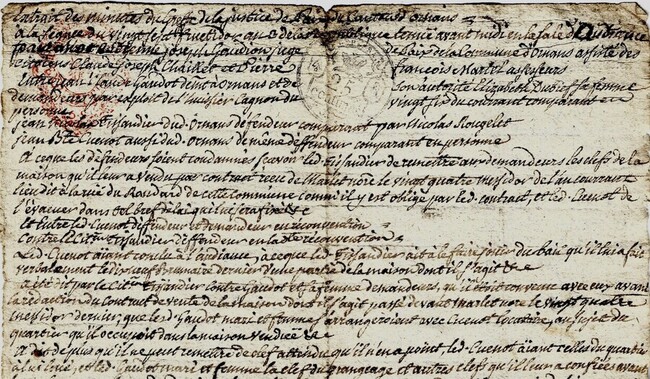 Extrait des minutes du Greffe de la justice de Paix du Canton d'ornans
a la séance du vingt sept fructidor, an 8 de la republique tenüe avant midi en la sale d'audience
par devant citoienne Joseph Gaudion juge de Paix de la Commune d'Ornans assisté des
citoiens Claude Joseph Chaillet et Pierre françois Martel assesseurs
Entre Jean Claude Gaudot dent à Ornans et de son autorité Elizabeth Dubief sa femme
demandeurs par exploit de l'huissier Cagnon du vingt six du courant comparant en
personne
jean Tissandier dud. Ornans défendeur comparant par Nicolas Rougelet
jean Bte Cuenot aussi dud. ornans de même deffendeur comparant en personne
A ce que les défendeurs soient condamnes scavoir led. Tissandier de remettre aux demandeurs les clefs de la
maison qu'il leur a vendu par contract recu de Marlet nore le vingt quatre messidor de l'an courant
lieu dit à la rüe du Rondard de cette commune comme il y est obligé par led. contract, et led. Cuenot de
l'évacuer dans tel bref delai qui lui sera fixé &c
et Entre led. Cuenot deffendeur et demandeur en reconvention
contre le Cit. Tissandier deffendeur en lad. reconvention
Led. Cuenot aiant conclu à l'audiance, a ce que led. Tissandier ait à le faire jouir du bail qu'il lui a fait
verbalement le brumaire dernier d'une partie de la maison dont il s'agit &c
a été dit par le Cit. Tissandier contre Gaudot et sa femme demandeurs, qu'il étoit convenu avec eux avant
la rédaction du contract de vente de la maison dont il s'agit passé devant Marlet nore le vingt quatre
messidor dernier, que led. Gaudot mari et femme s'arrangeroient avec Cuenot locataire, au sujet du
quartier qu'il occupoit dans la maison vendüe &c
A dit de plus qu'il ne peut remettre de clef attendu qu'il n'en a point, led. Cuenot aiant celles du quartier
et led. Gaudot mari et femme la clef du grangeage et autres clefs qu'il leur a confiées avant